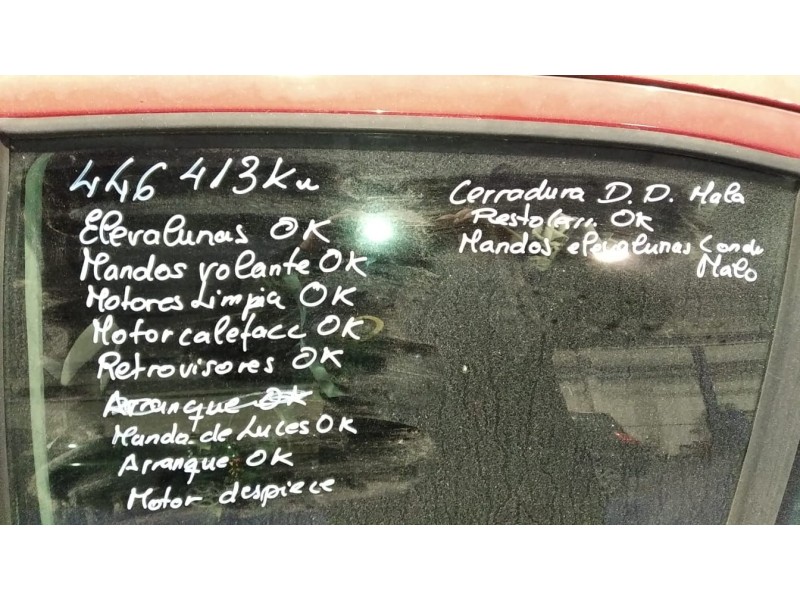 446 413 Km
Elevalunas OK
Mandos volante OK
Motores Limpia OK
Motor calefacc OK
Retrovisores OK
Arranque OK
Manda de Luces OK
Arranque OK
Motor despiece
Cerradura D. D. Mala
Resto Cerr. OK
Mandos elevalunas Condu
Malo